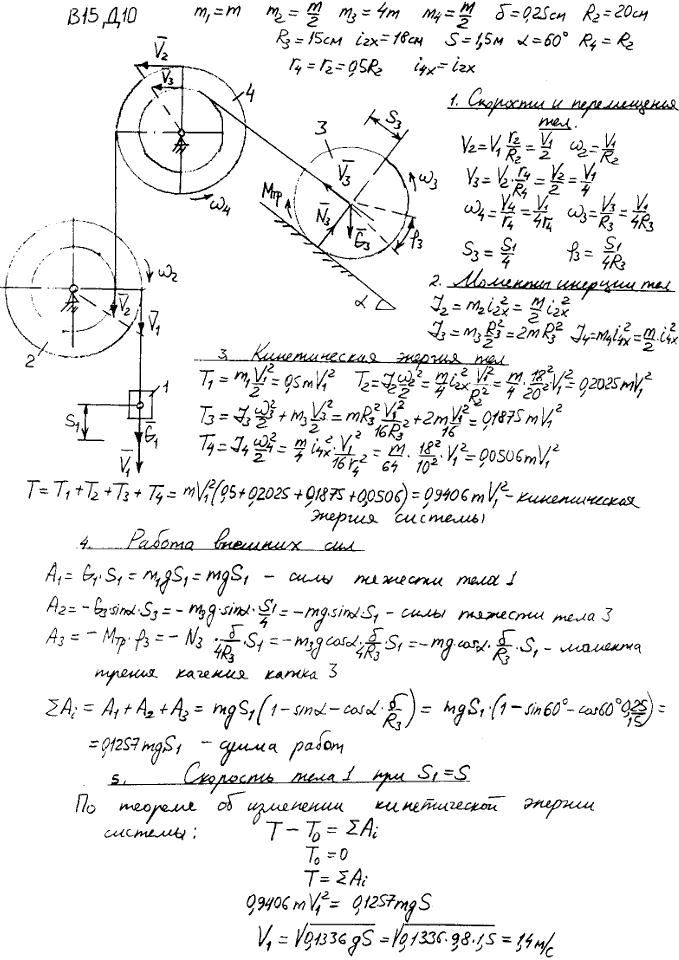 В15 Д10 m₁=m m₂=m/2 m₃=4m m₄=m/2 δ=0,25см R₂=20см
R₃=15см i₂ₓ=18см S=1,5м α=60° R₄=R₂
r₄=r₂=0,5R₂ i₄ₓ=i₂ₓ
V̄₂
V̄₃
4
ω₄
3
S₃
V̄₃
ω₃
Mтр
N̄₃
Ḡ₃
φ₃
α
ω₂
V̄₂
V̄₁
2
1
S₁
Ḡ₁
V̄₁
1. Скорости и перемещения
тел.
V₂=V₁ r₂/R₂=V₁/2 ω₂=V₁/R₂
V₃=V₂·r₄/R₄=V₂/2=V₁/4
ω₄=V₃/r₄=V₁/4r₄ ω₃=V₃/R₃=V₁/4R₃
S₃=S₁/4 φ₃=S₁/4R₃
2. Моменты инерции тел
J₂=m₂i₂ₓ²=m/2 i₂ₓ²
J₃=m₃R₃²/2=2mR₃² J₄=m₄i₄ₓ²=m/2·i₄ₓ²
3. Кинетическая энергия тел
T₁=m₁V₁²/2=0,5mV₁² T₂=J₂ω₂²/2=m/4 i₂ₓ²·V₁²/R₂²=m/4·18²/20²V₁²=0,2025mV₁²
T₃=J₃ω₃²/2+m₃V₃²/2=mR₃²V₁²/16R₃²+2mV₁²/16=0,1875mV₁²
T₄=J₄ω₄²/2=m/4 i₄ₓ²·V₁²/16r₄²=m/64·18²/10²·V₁²=0,0506mV₁²
T=T₁+T₂+T₃+T₄=mV₁²(0,5+0,2025+0,1875+0,0506)=0,9406mV₁²-кинетическая
энергия системы
4. Работа внешних сил
A₁=G₁·S₁=m₁gS₁=mgS₁ - силы тяжести тела 1
A₂=-G₃sinα·S₃=-m₃g·sinα·S₁/4=-mgsinα·S₁ - силы тяжести тела 3
A₃=-Mтр·φ₃=-N₃·δ/4R₃·S₁=-m₃gcosα·δ/4R₃·S₁=-mg·cosα·δ/R₃·S₁ - момента
трения качения катка 3
ΣAᵢ=A₁+A₂+A₃=mgS₁(1-sinα-cosα·δ/R₃)=mgS₁·(1-sin60°-cos60°0,25/15)=
=0,1257mgS₁ - сумма работ
5. Скорость тела 1 при S₁=S
По теореме об изменении кинетической энергии
системы: T-T₀=ΣAᵢ
T₀=0
T=ΣAᵢ
0,9406mV₁²=0,1257mgS
V₁=√0,1336gS=√0,1336·9,8·1,5=1,4м/с